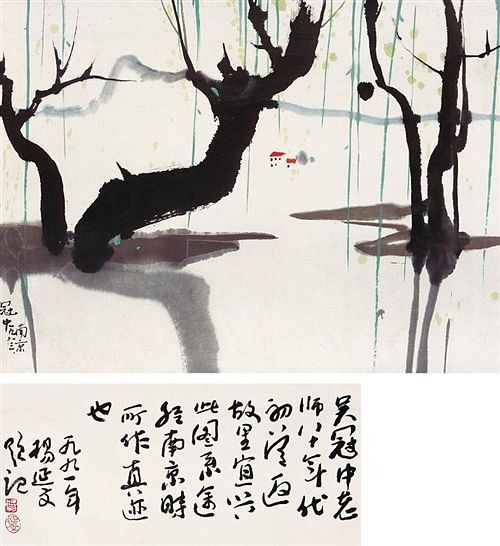 冠中
南京
吴冠中老
师八十年代
初返
故里宜兴
此图系途
经南京时
所作真迹
也
一九九一年
杨延文
题记